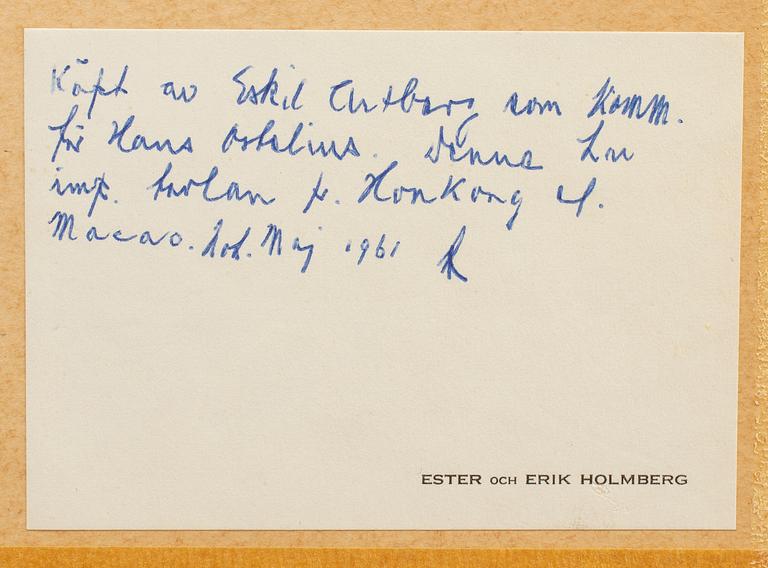 Köpt av Eskil Artberg som Komm.
för Hans Ostelius. Denne
imp. tavlan fr. HonKong el.
Macao. Maj 1961
ESTER OCH ERIK HOLMBERG